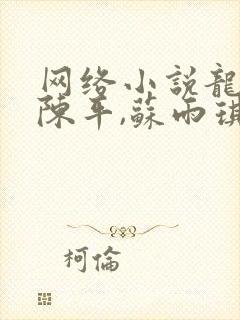 网络小説龍
陳平,蘇雨琪
柯倫